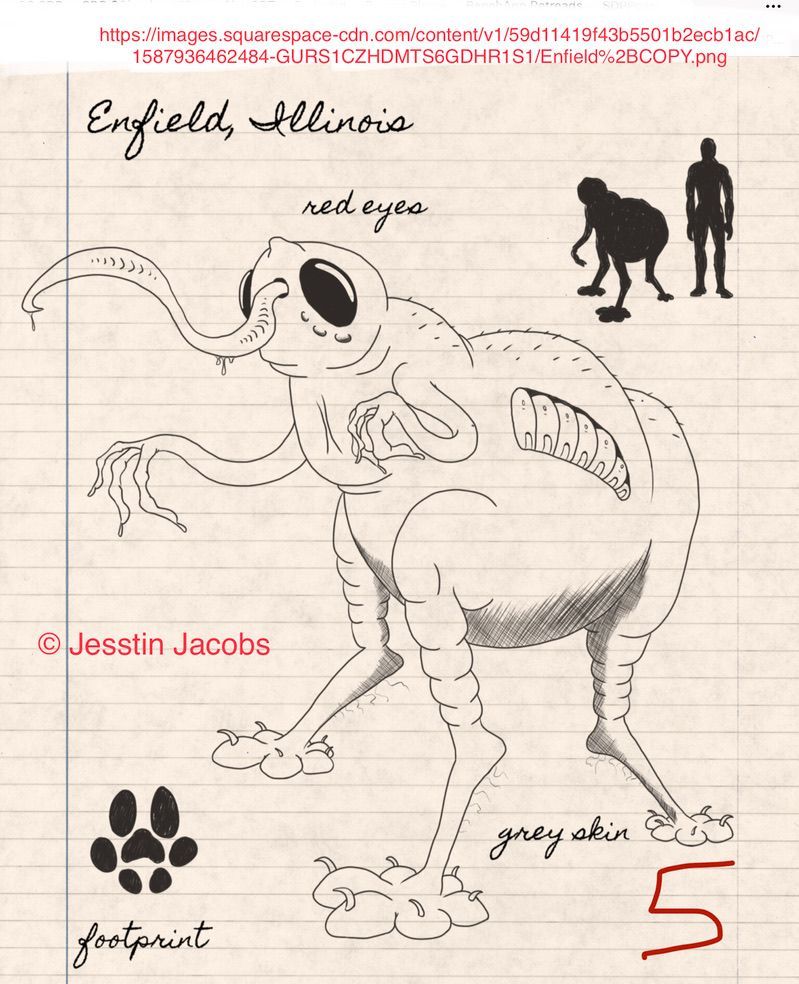 https://images.squarespace-cdn.com/content/v1/59d11419f43b5501b2ecb1ac/
1587936462484-GURS1CZHDMTS6GDHR1S1/Enfield%2BCOPY.png
Enfield, Illinois
red eyes
© Jesstin Jacobs
grey skin
5
footprint